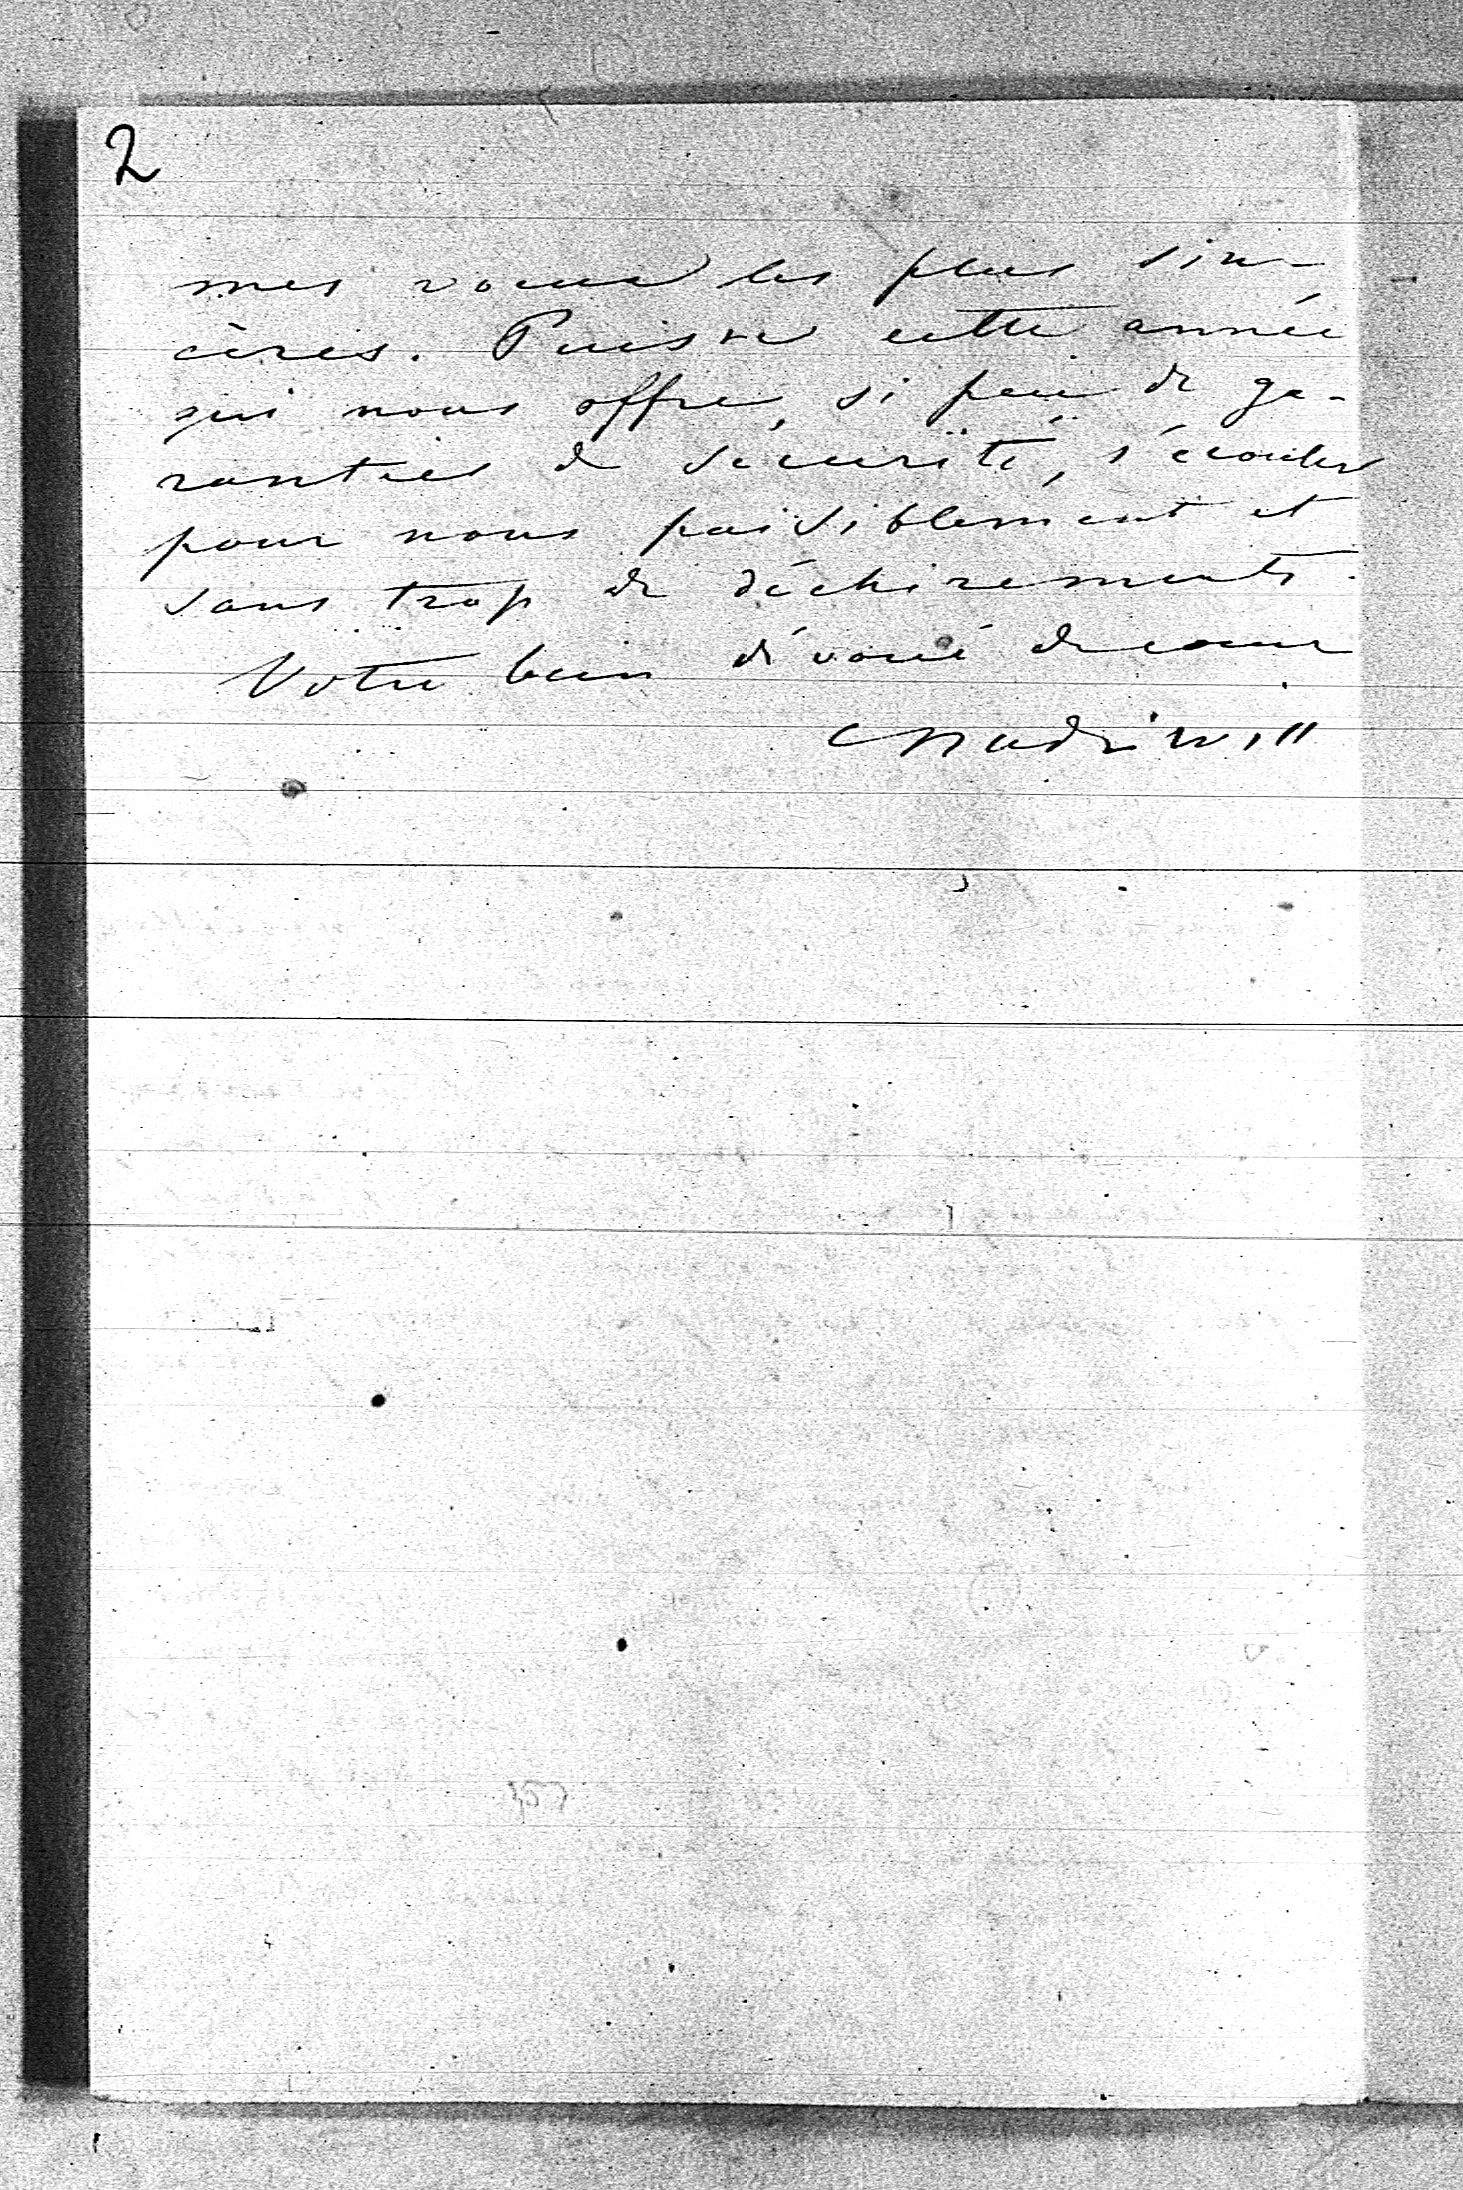 2
mes voeux les plus sin-
cères. Puisse cette année
qui nous offre, si peu de ga-
ranties de sécurité, s'écouler
pour nous paisiblement et
sans trop de déchirements.
Votre bien dévoué de coeur